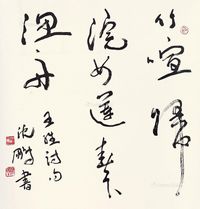 竹喧歸
浣女蓮動下
漁舟
王維詩句
沈鵬書